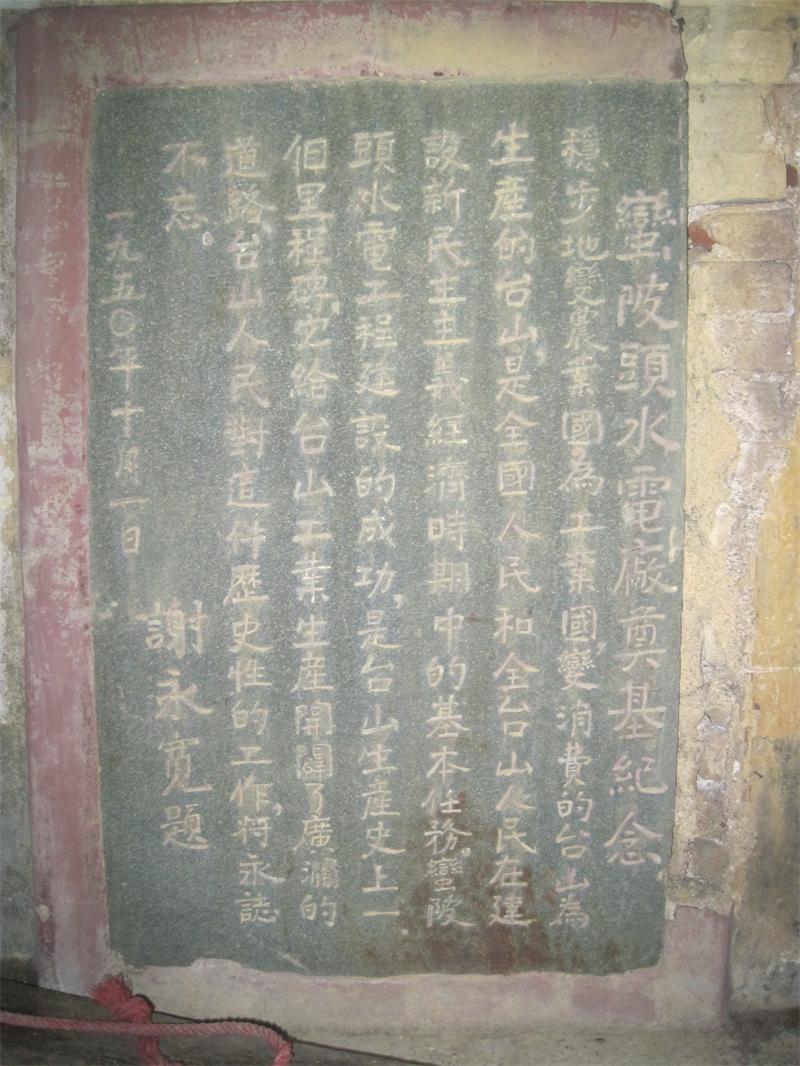 蠻陂頭水電廠奠基紀念
穩步地變農業國為工業國,變消費的台山為
生產的台山,是全國人民和全台山人民在建
設新民主主義經濟時期中的基本任務。蠻陂
頭水電工程建設的成功,是台山生產史上一
個里程碑,它給台山工業生產開闢了廣濶的
道路,台山人民對這件歷史性的工作,將永誌
不忘。
一九五〇年十月一日
謝永寬題